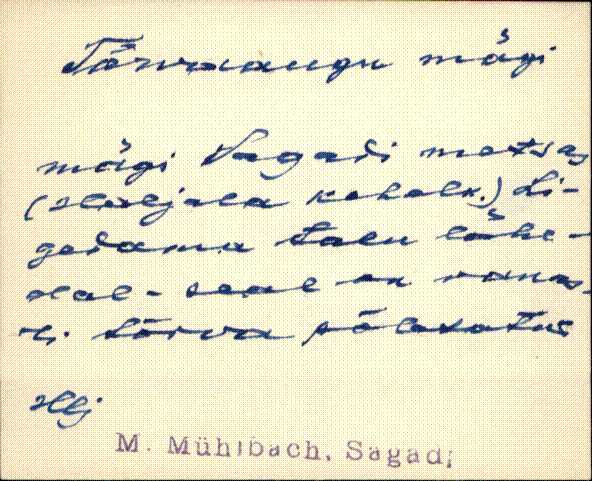 Tõrvaaugu mägi
mägi Sagadi metsas
(Haljala kihelk.) Li-
gedama talu lähe-
dal - seal on vanas-
ti tõrva põletatud
Hlj
M. Mühlbach, Sagadi